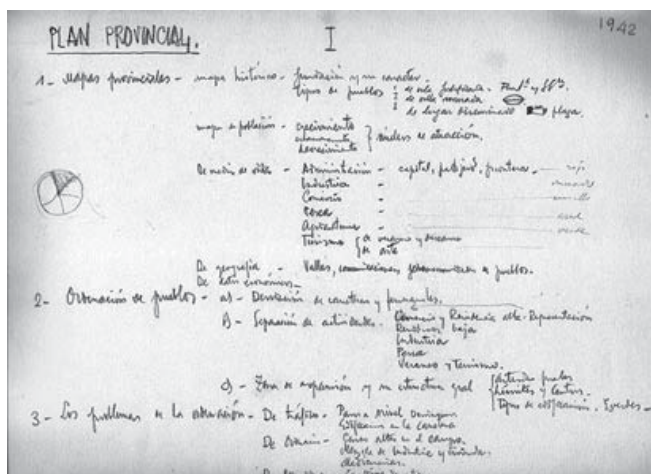 PLAN PROVINCIAL. I 1942
1- Mapas provinciales - mapa histórico - fundación y su caracter.
tipos de pueblos de villa fortificada -
de villa murada
de lugar diseminado plaza.
mapa de población - crecimiento
estancamiento
decrecimiento núcleos de atracción.
De medios de vida - Administración - capital, part. jud., fronteras. - rojo
Industria - morado
Comercio - amarillo
Pesca - azul
Agricultura - verde
Turismo de verano y descanso
de arte
De geografía - Valles, comunicaciones de pueblos.
De datos económicos -
2- Ordenación de pueblos - a) - Desviación de carreteras y ferrocarriles.
b) - Separación de actividades. Comercio y Residencia alta - Representación
Residencia baja
Industria
Pesca
Veraneo y Turismo.
c) - Zona de expansión y su estructura gral
Tipos de edificación.
3- Los problemas de la ordenación - De tráfico - Pasos a nivel
Edificios en la carretera
De - Casas altas en el campo.
Mezcla de industria y viviendas